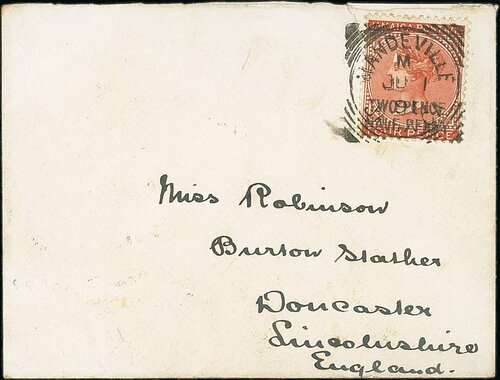 JAMAICA
MANDEVILLE
M
JU 1
TWOPENCE
HALF-PENNY
FOUR PENCE
Miss Robinson
Burton Stather
Doncaster
Lincolnshire
England.